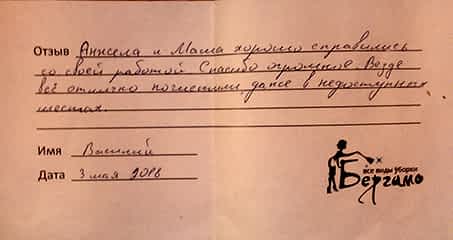 Отзыв Анжела и Маша хорошо справились
со своей работой Спасибо огромное. Везде
всё отлично почистили, даже в недоступных
местах.
Имя Василий
Дата 3 мая 2016
все виды уборки
Бергамо